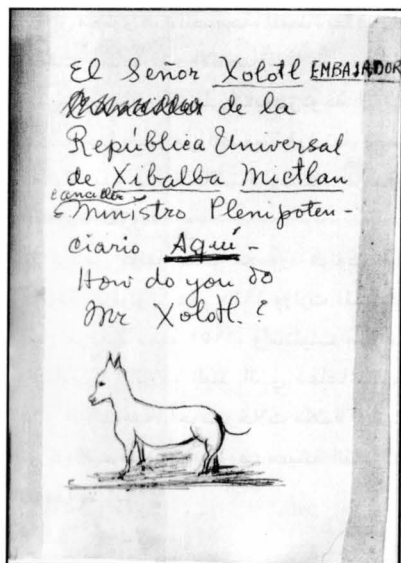 El Señor Xolotl EMBAJADOR
de la
República Universal
de Xibalba Mictlan
canciller
Ministro Plenipoten-
ciario Aquí-
How do you do
Mr Xolotl.?